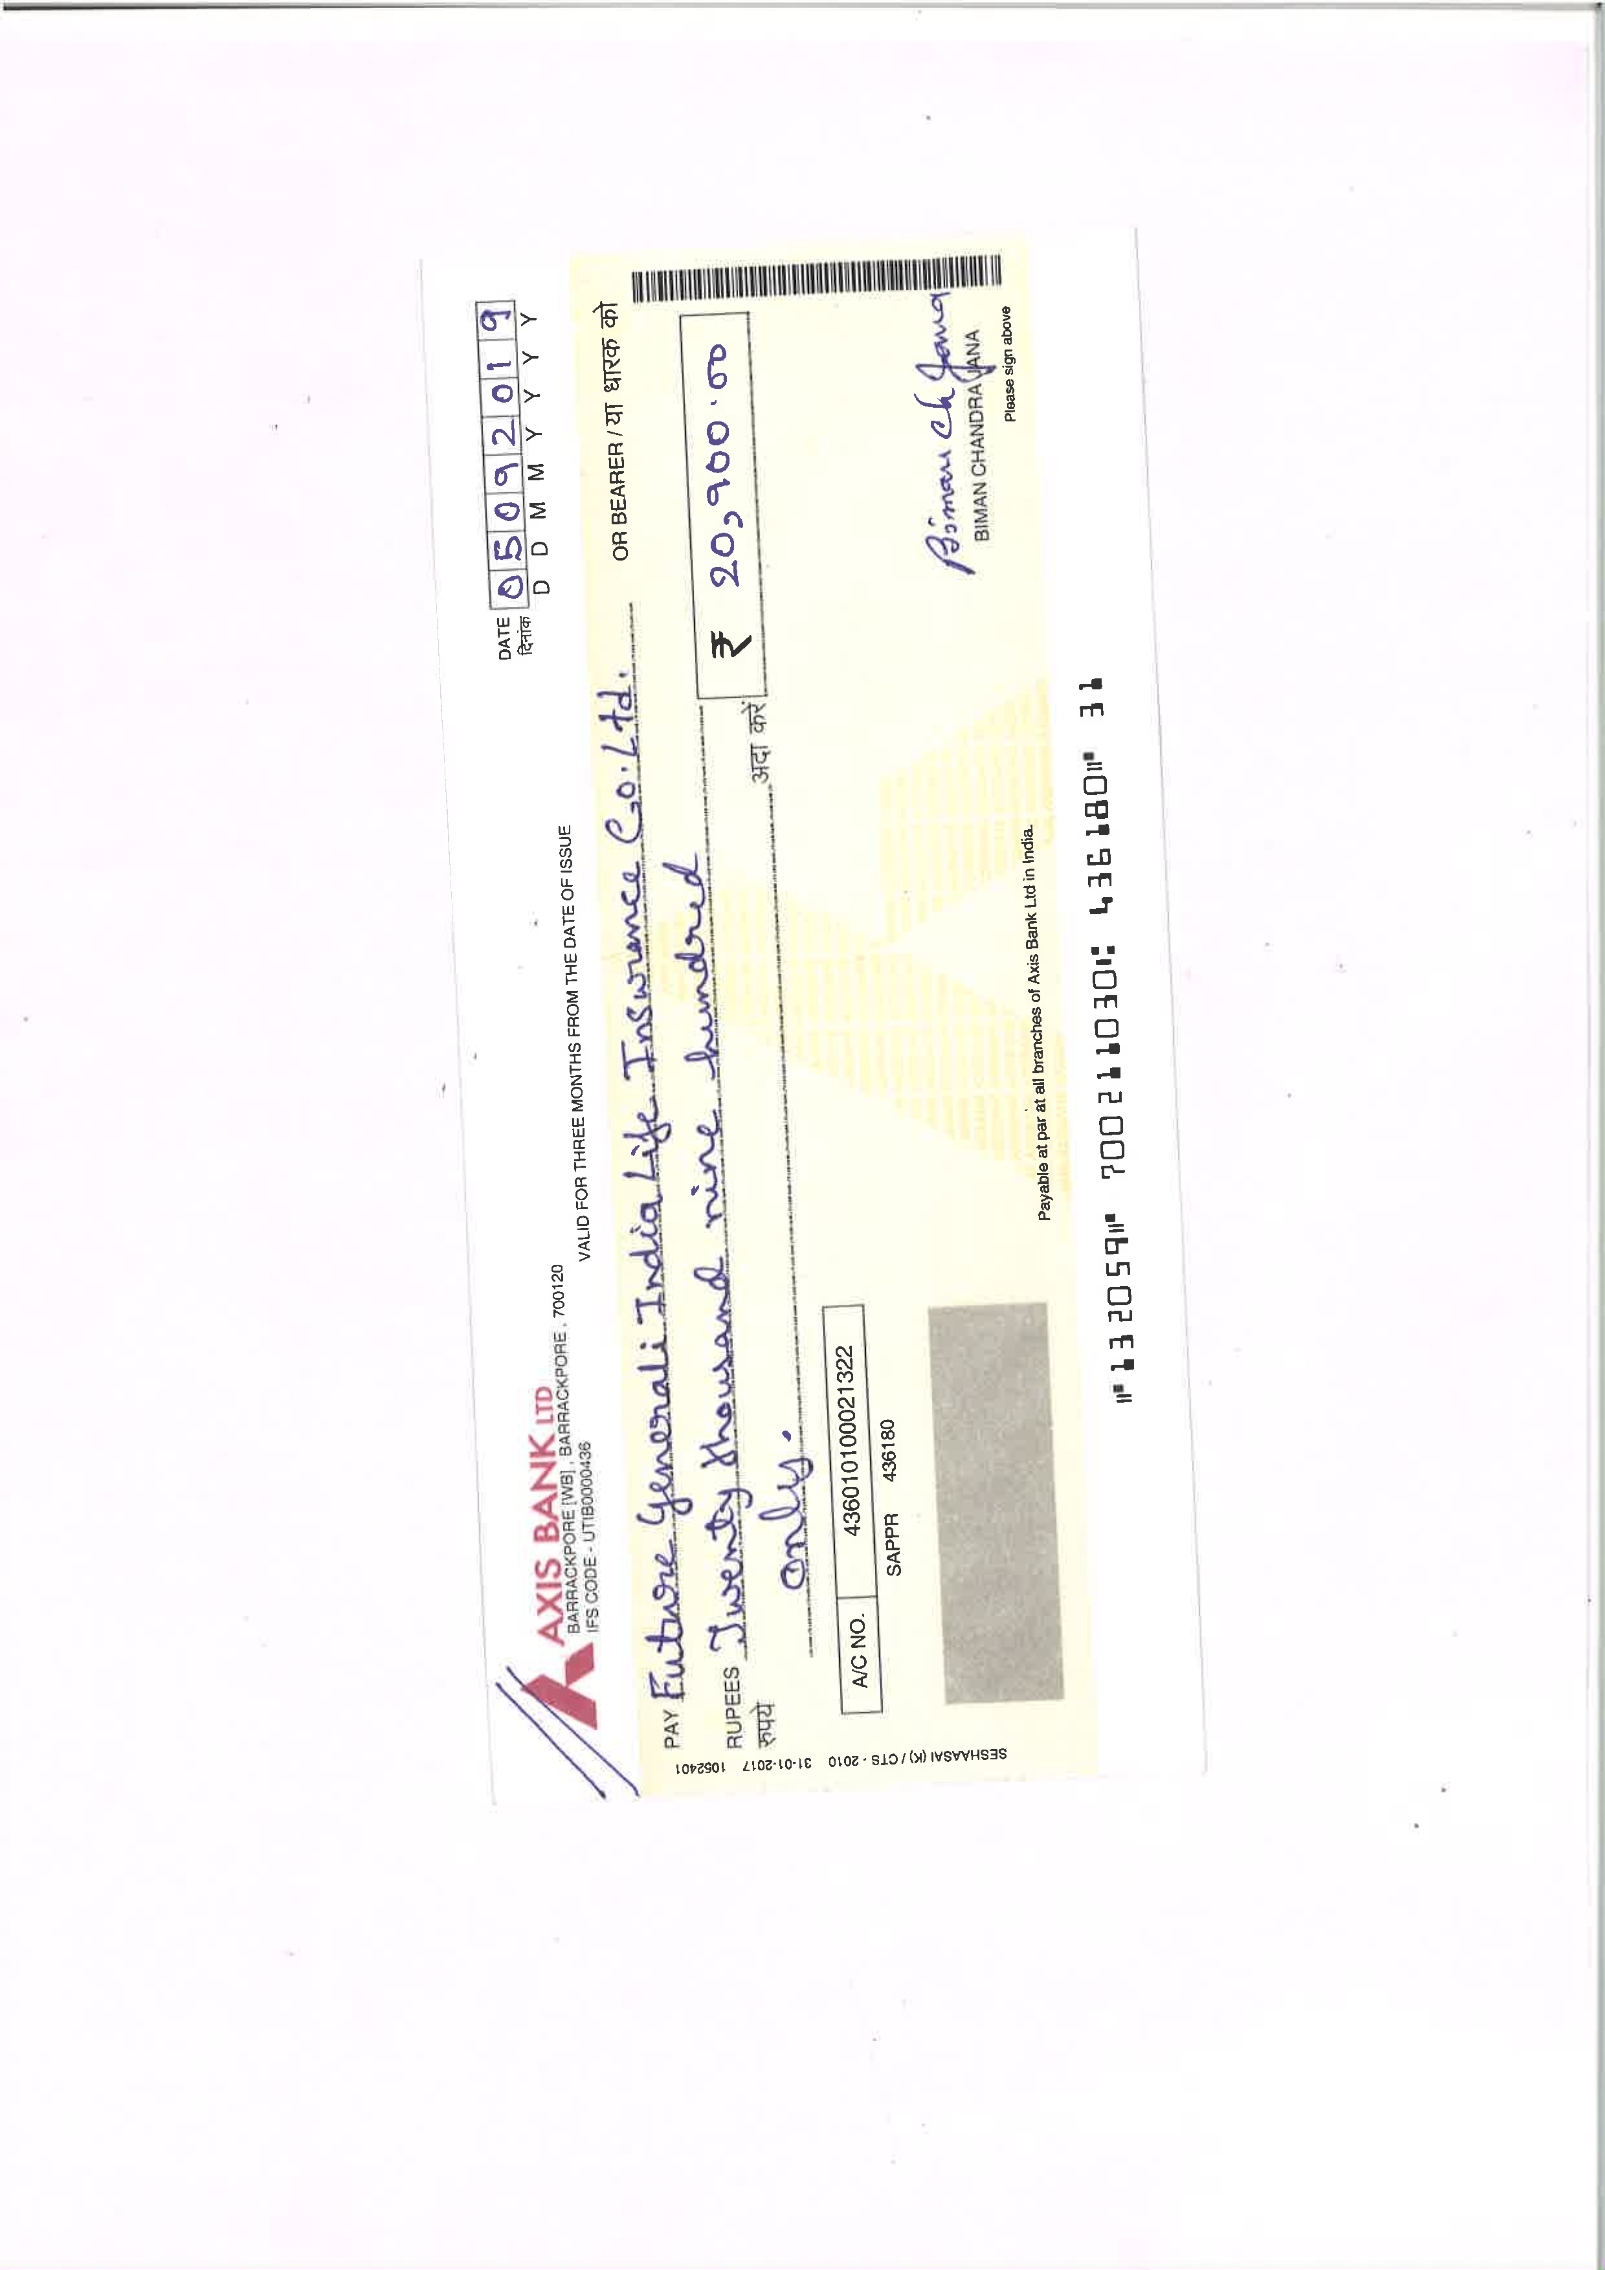 AXIS BANK LTD
BARRACKPORE [WB] , BARRACKPORE , 700120
IFS CODE - UTIB0000436
VALID FOR THREE MONTHS FROM THE DATE OF ISSUE
DATE 05092019
दिनांक D D M M Y Y Y Y
PAY Future Generali India Life Insurance Co. Ltd. OR BEARER / या धारक को
RUPEES Twenty thousand nine hundred
रुपये only. अदा करें ₹ 20,900.00
A/C NO. 436010100021322
SAPPR 436180
Biman Ch Jana
BIMAN CHANDRA JANA
Please sign above
Payable at par at all branches of Axis Bank Ltd in India.
SESHAASAI (K) / CTS - 2010 31-01-2017 1052401
⑈132059⑈ 700211030⑆ 436180⑈ 31